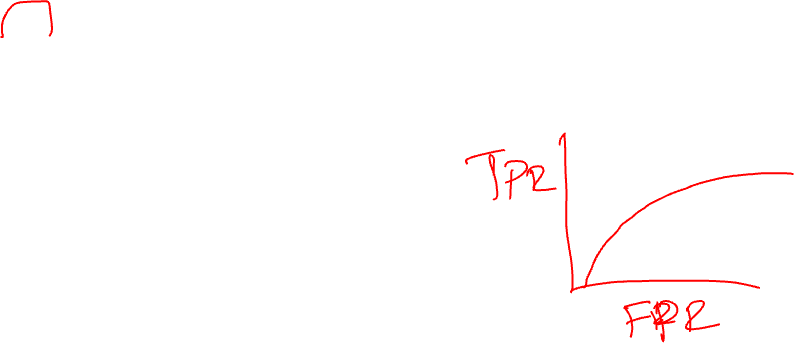 TPR
FPR